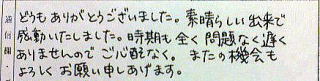 通信欄
どうもありがとうございました。素晴らしい出来で
感動いたしました。時期も全く問題なく遅く
ありませんのでご心配なく。またの機会も
よろしくお願い申しあげます。